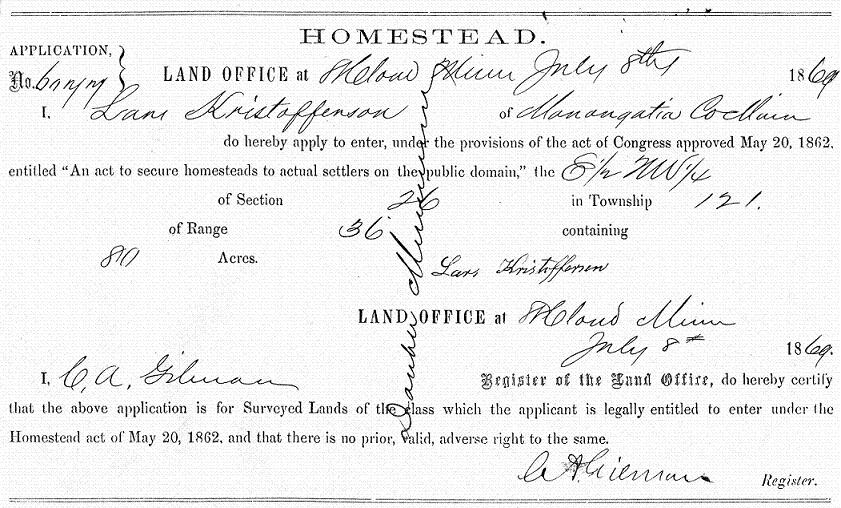 HOMESTEAD.
APPLICATION,
No. 6077
LAND OFFICE at St Cloud Minn July 8th 1869
I, Lars Kristofferson of Monongalia Co Minn
do hereby apply to enter, under the provisions of the act of Congress approved May 20, 1862,
entitled "An act to secure homesteads to actual settlers on the public domain," the E ½ NW ¼
of Section 26 in Township 121.
of Range 36 containing
80 Acres.
Lars Kristofferson
LAND OFFICE at St Cloud Minn
July 8th 1869.
I, C. A. Gilman Register of the Land Office, do hereby certify
that the above application is for Surveyed Lands of the class which the applicant is legally entitled to enter under the
Homestead act of May 20, 1862, and that there is no prior, valid, adverse right to the same.
C A Gilman Register.
Double Minimum